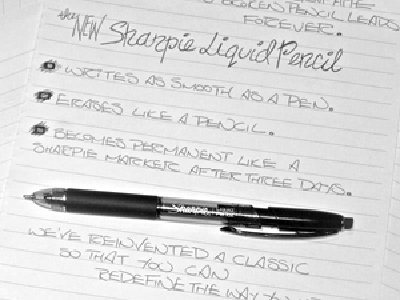 BROKEN PENCIL LEADS
FOREVER.
the NEW Sharpie Liquid Pencil
WRITES AS SMOOTH AS A PEN.
ERASES LIKE A PENCIL.
BECOMES PERMANENT LIKE A
SHARPIE MARKER AFTER THREE DAYS.
Sharpie
WE'VE REINVENTED A CLASSIC
SO THAT YOU CAN
REDEFINE THE WAY YOU